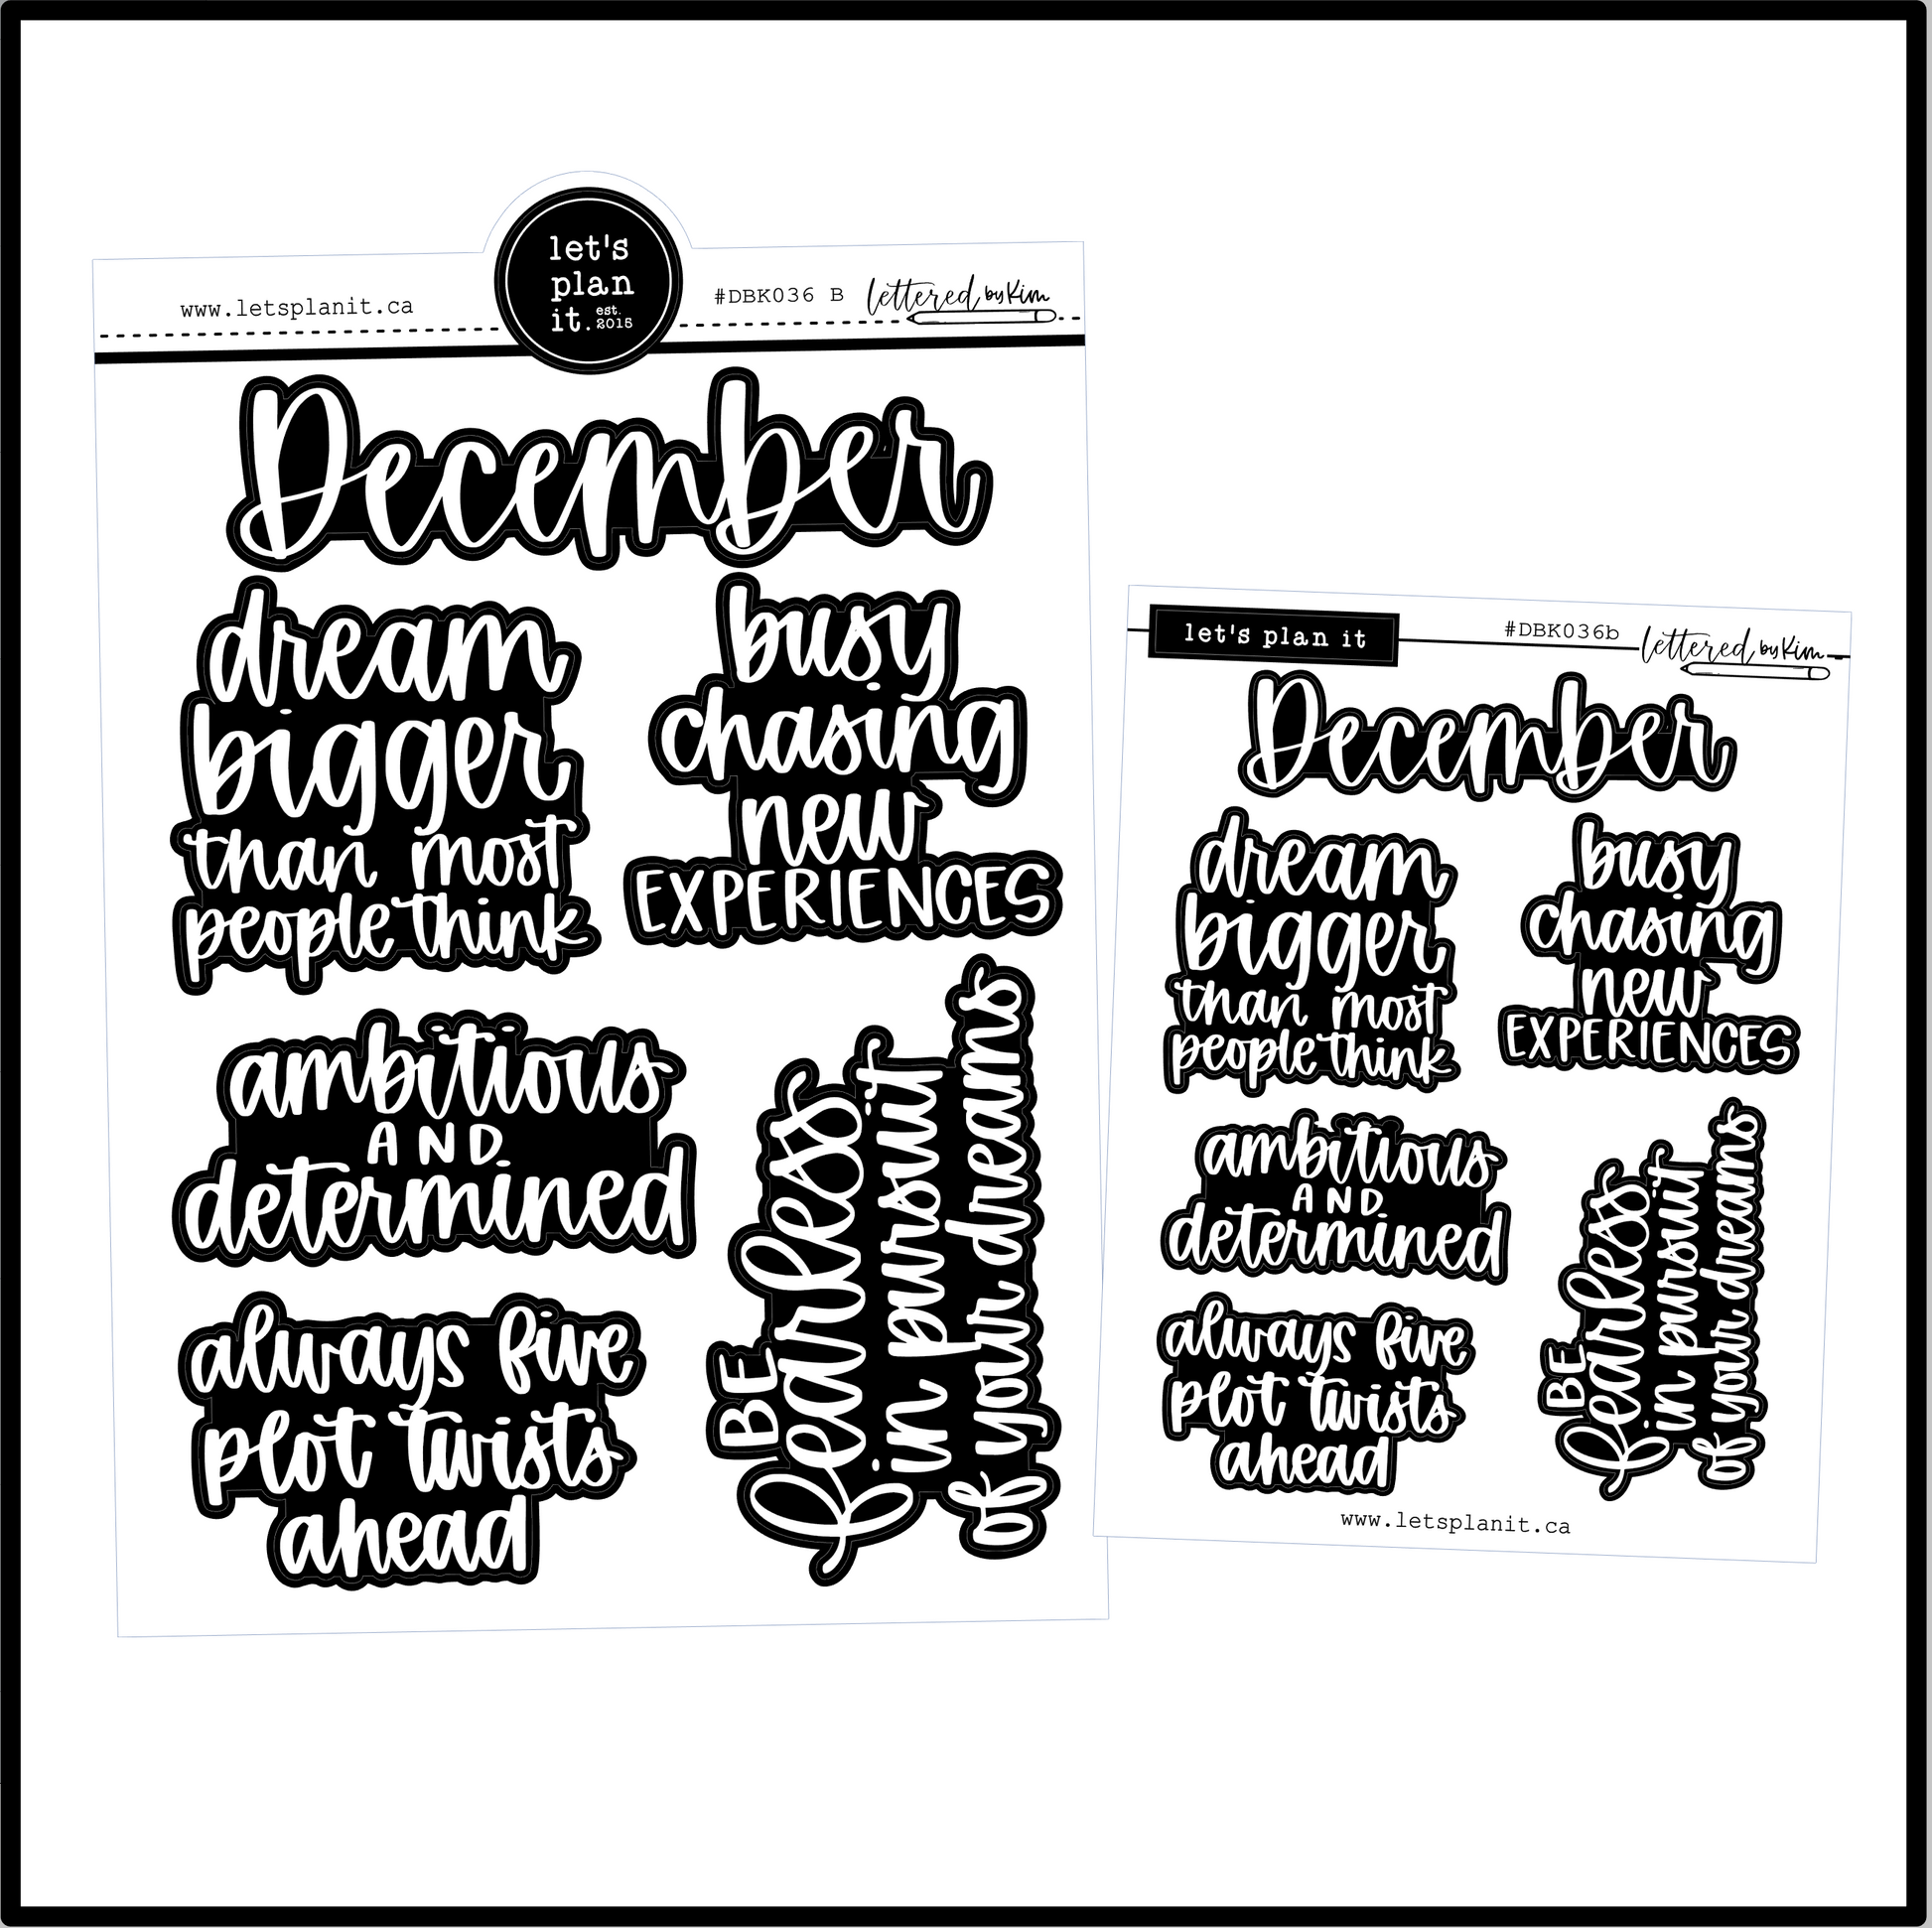 www.letsplanit.ca
let's
plan
it. est. 2015
#DBK036 B
lettered by Kim
December
dream
bigger
than most
people think
busy
chasing
new
EXPERIENCES
ambitious
AND
determined
always five
plot twists
ahead
BE
fearless
in pursuit
of your dreams
let's plan it
#DBK036b
lettered by Kim
December
dream
bigger
than most
people think
busy
chasing
new
EXPERIENCES
ambitious
AND
determined
always five
plot twists
ahead
BE
fearless
in pursuit
of your dreams
www.letsplanit.ca